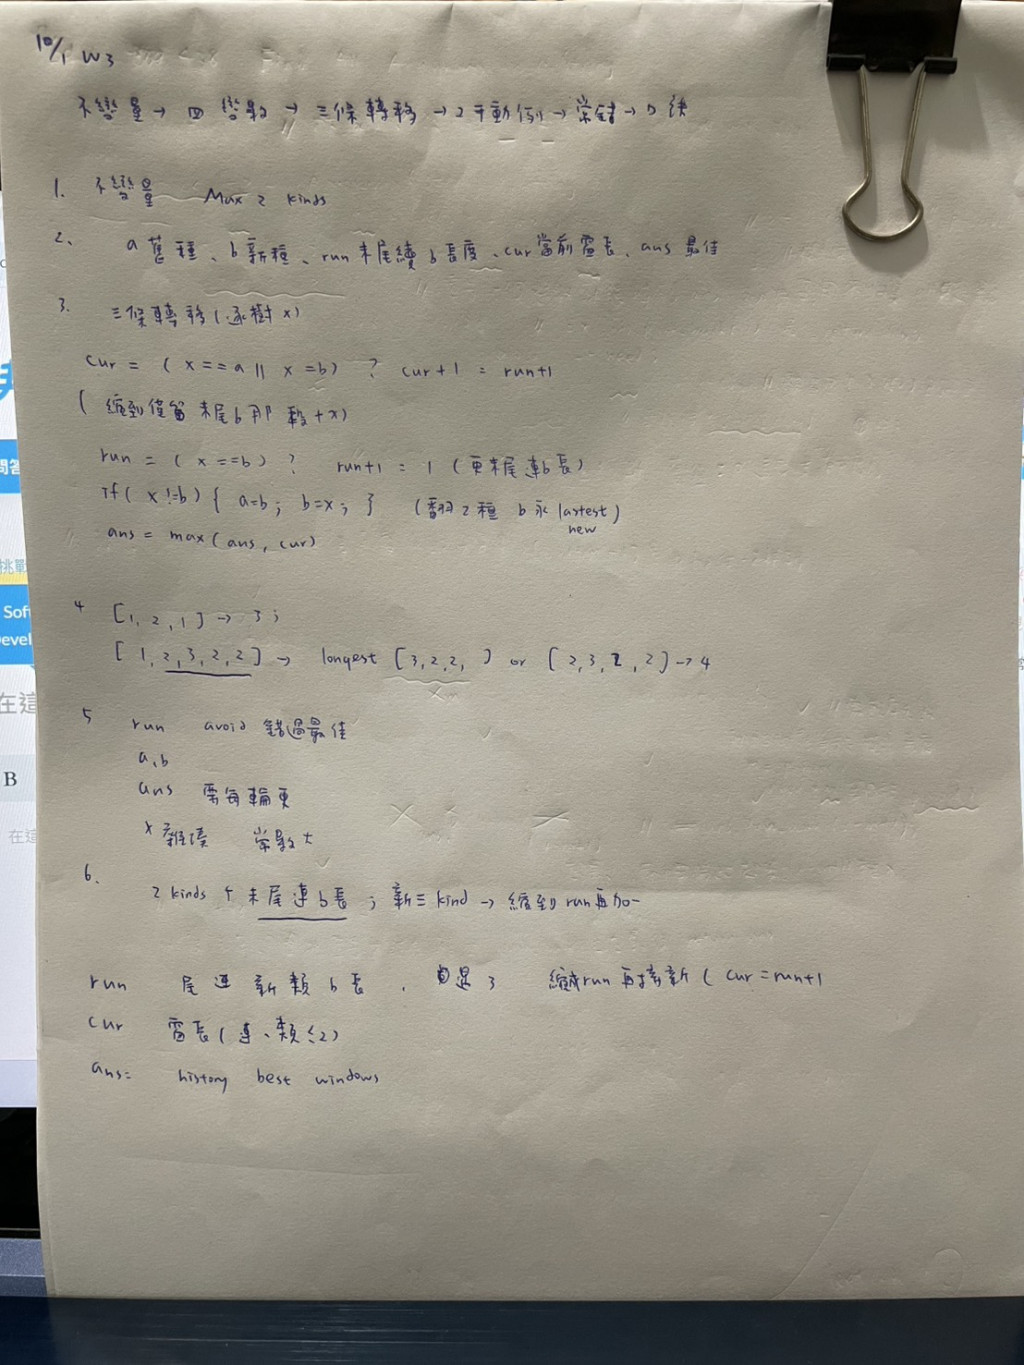 10/1 W3
不變量 → 四變數 → 三條轉移 → 2手動例 → 常錯 → 口訣
1. 不變量 Max 2 kinds
2、 a 舊種、b 新種、run 末尾續b長度、cur 當前窗長、ans 最佳
3. 三條轉移(逐樹x)
cur = ( x==a || x=b) ? cur+1 = run+1
( 縮到僅留末尾b那段+x)
run = ( x==b) ? run+1 = 1 (更末尾連b長)
if( x!=b) { a=b; b=x; } (翻2種 b永lastest)
new
ans = max(ans, cur)
4 [1, 2, 1] → 3;
[ 1, 2, 3, 2, 2] → longest [3,2,2, ] or [2,3,2,2] → 4
5 run avoid 錯過最佳
a,b
ans 需每輪更
常數大
6. 2 kinds 末尾連b長 ; 新三kind → 縮到run再加一
run 尾連新類b長 , 3 縮成run再接新( cur=run+1
cur 窗長(連、類≤2)
ans= history best windows
問答
挑戰
Sof
evel
在這
B
在這